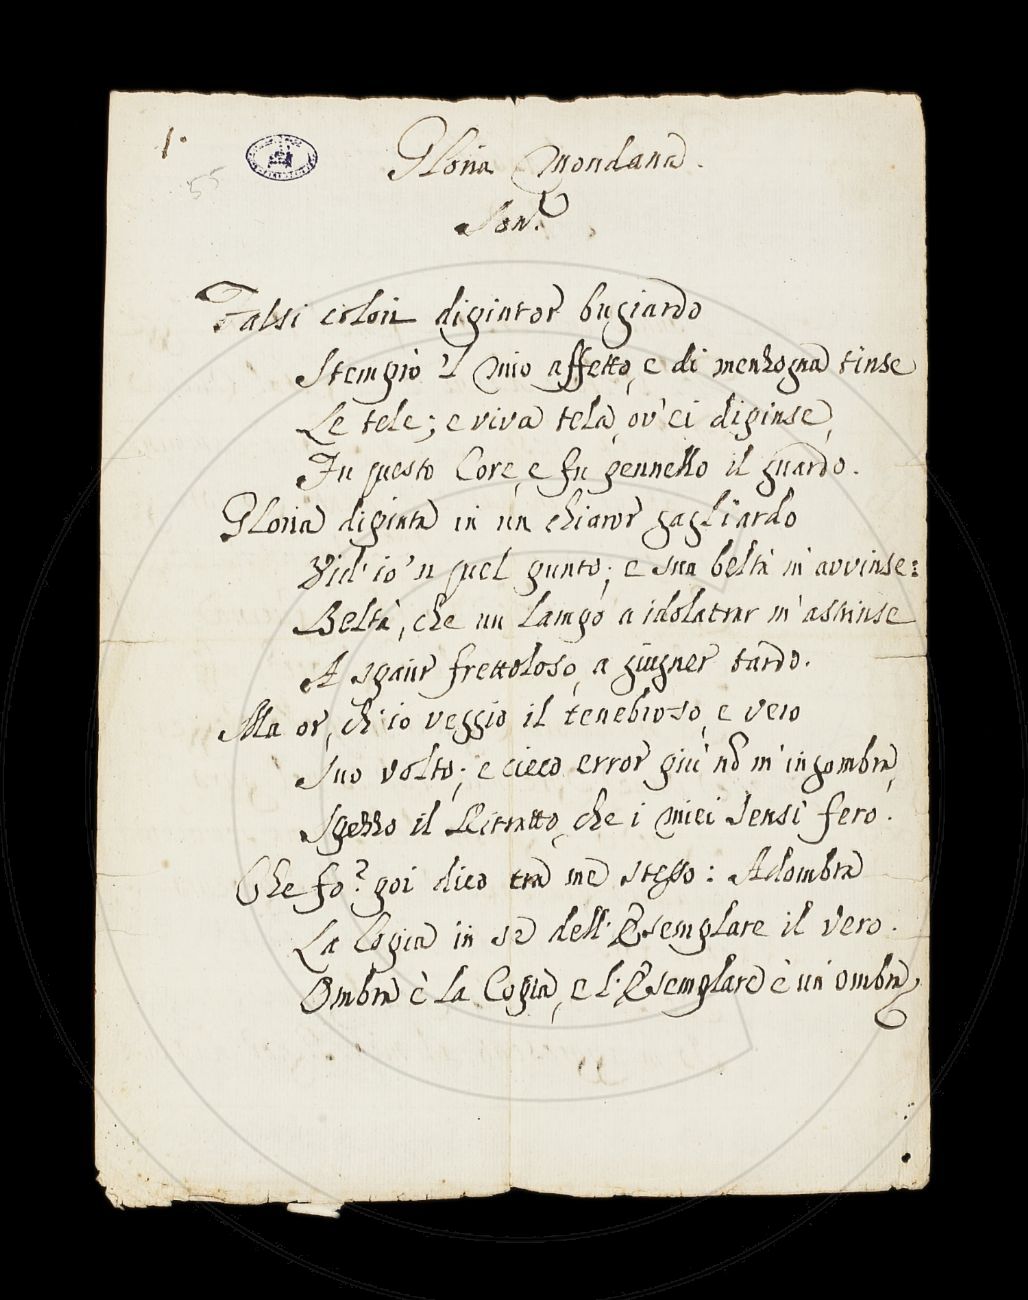 1.
55
Gloria Mondana.
Son.
Falsi colori dipintor bugiardo
Stemprò 'l mio affetto, e di menzogna tinse
Le tele; e viva tela, ov' ei dipinse,
Fu questo Core, e fu pennello il guardo.
Gloria dipinta in un chiaror gagliardo
Vid' io 'n quel punto; e sua beltà m' avvinse:
Beltà, che un lampo a idolatrar m' astrinse
A sparir frettoloso, a giugner tardo.
Ma or, ch' io veggio il tenebroso, e vero
Suo volto; e cieco error più nō m' ingombra,
Spezzo il Ritratto, che i miei sensi fero.
Che fo? poi dico tra me stesso: Adombra
La Copia in se dell' Esemplare il vero.
Ombra è la Copia, e l' Esemplare è un' ombra